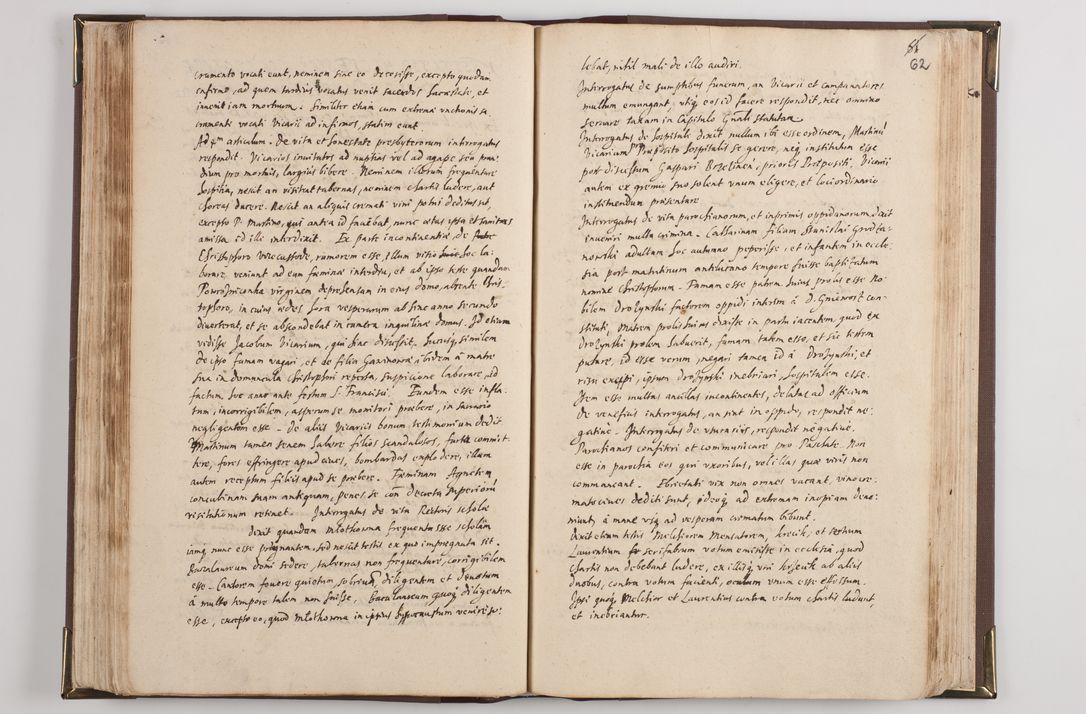 cramento vocati eunt, neminem sine eo decessisse, excepto quodam
infirmo, ad quem tardius vocatus venit sacerdos
invenit iam mortuum. Similiter etiam cum extremae unctionis sa
cramenti vocati Vicarii ad infirmos, statim eunt
Ad 4m articulum. De vita et honestate presbyterorum interrogatus
respondit. Vicarios invitatos ad nuptias vel ad agape seu pran
dium pro mortuis, largius bibere. Neminem illorum frequentare
hospitia, nescit an visitent tabernas, neminem chartis ludere, aut
choreas ducere. Nescit an aliquis cremati vini potui deditus sit,
excepto P. Martino, qui antea id faciebat, nunc
amissa id illi interdixit. Ex parte incontinentiae, de
Christophoro Vicecustode, rumorem esse, illum vitio hoc la-
borare veniunt ad eum foeminae interdiu, et ab ipso teste quandam
virginem deprehensam in eius domo, absente Chris
tophoro, in cuius aedes hora vespertina ab hinc anno secundo
diverterat, et se abscondebat in camera inquilinae domus. Id etiam
vidisse Jacobum Vicarium, qui hinc discessit. similem
de ipso famam vagari, et de filia ibidem a matre
sua in domuncula Christophori reperta, suspicione laborare, id
factum hoc anno ante festum S. Francisci. Eundem esse infla-
tum, incorrigibilem, asperum se monitori praebere, in
negligentem esse. De aliis Vicariis bonum testimonium dedit
Martinum tamen senem habere filios scandalosos, furta commit
tere, fores effringere apud cives, bombardas explodere, illum
autem receptum filiis apud se praebere. Foeminam Agnetem
concubinam suam antiquam, penes se contra decreta superiorum
visitationum retinet. Interrogatus de vita Rectoris scholae
dixit quandam Młotkowna frequentasse scholam
iamque nunc esse praegnantem, sed nescit testis ex quo impregnata sit.
Baccalaureum domi sedere, tabernas non frequentare, corrigibilem
esse. Cantorem fovere quietum sobrium, diligentem et devotum
a multo tempore talem non fuisse, Baccalaureum quoque diligentem
esse, excepto eo, quod Młotkowna in ipsius hypocaustum venire so-
81
62
lebat, nihil mali de illo audivi.
Interrogatus de sumptibus funerum, an Vicarii et campanatores
multum emungant, utique eos id facere respondit, nec omnino
servare taxam in Capitulo Gnali statutam
Interrogatus de hospitali dixit nullum ibi esse ordinem, Martinum
Vicarium pro Praeposito hospitalis se gerere, neque institutum esse
post discessum Gaspari prioris Praepositi. Vicarii
autem ex gremio suo solent unum eligere, et loci ordinario
instituendum praesentare
Interrogatus de vita parochianorum, et inprimis oppidanorum dixit
inveniri multa crimina. Catharinam filiam Stanislai
adultam hoc autumno peperisse, et infantem in eccle-
sia post matutinum antelucano tempore fuisse baptizatum
nomine Christophorum. Famam esse patrem huius prolis esse No
bilem Drożynski factorem oppidi interim a D. Gniewosz con-
stituti, Matrem prolis huius dixisse in partu iacentem, quod ex
Drożynski prolem habuerit, famam talem esso, et sic testem
putare, id esse verum, negari tamen id a Drożynski, et
ipsum Drożynski inebriari, hospitalem esse.
Item esse multas ancillas incontinentes, delatas ad officium
de veneficiis interrogatus, an sint in oppido, respondit ne-
gative. Interrogatus de usurariis, respondit negative.
Parochianos confiteri et communicare pro Paschate. Non
esse in parochia eos qui uxoribus, vel illas quae viris non
commaneant. Ebrietati vix non omnes vacant, vino cre-
mato cives dediti sunt, ideoque ad extremam inopiam deve-
niunt, a mane usque ad vesperam crematum bibunt.
Dixit etiam testis Melchiorem Mensatorem, et tertium
Laurentium scribam votum emisisse in ecclesia, quod
chartis non debebant ludere, ex illisque ab aliis
duobus, contra votum facienti, oculum unum esse effossum.
Ipsi quoque Melchior et Laurentius contra votum chartis ludunt,
et inebriantur.